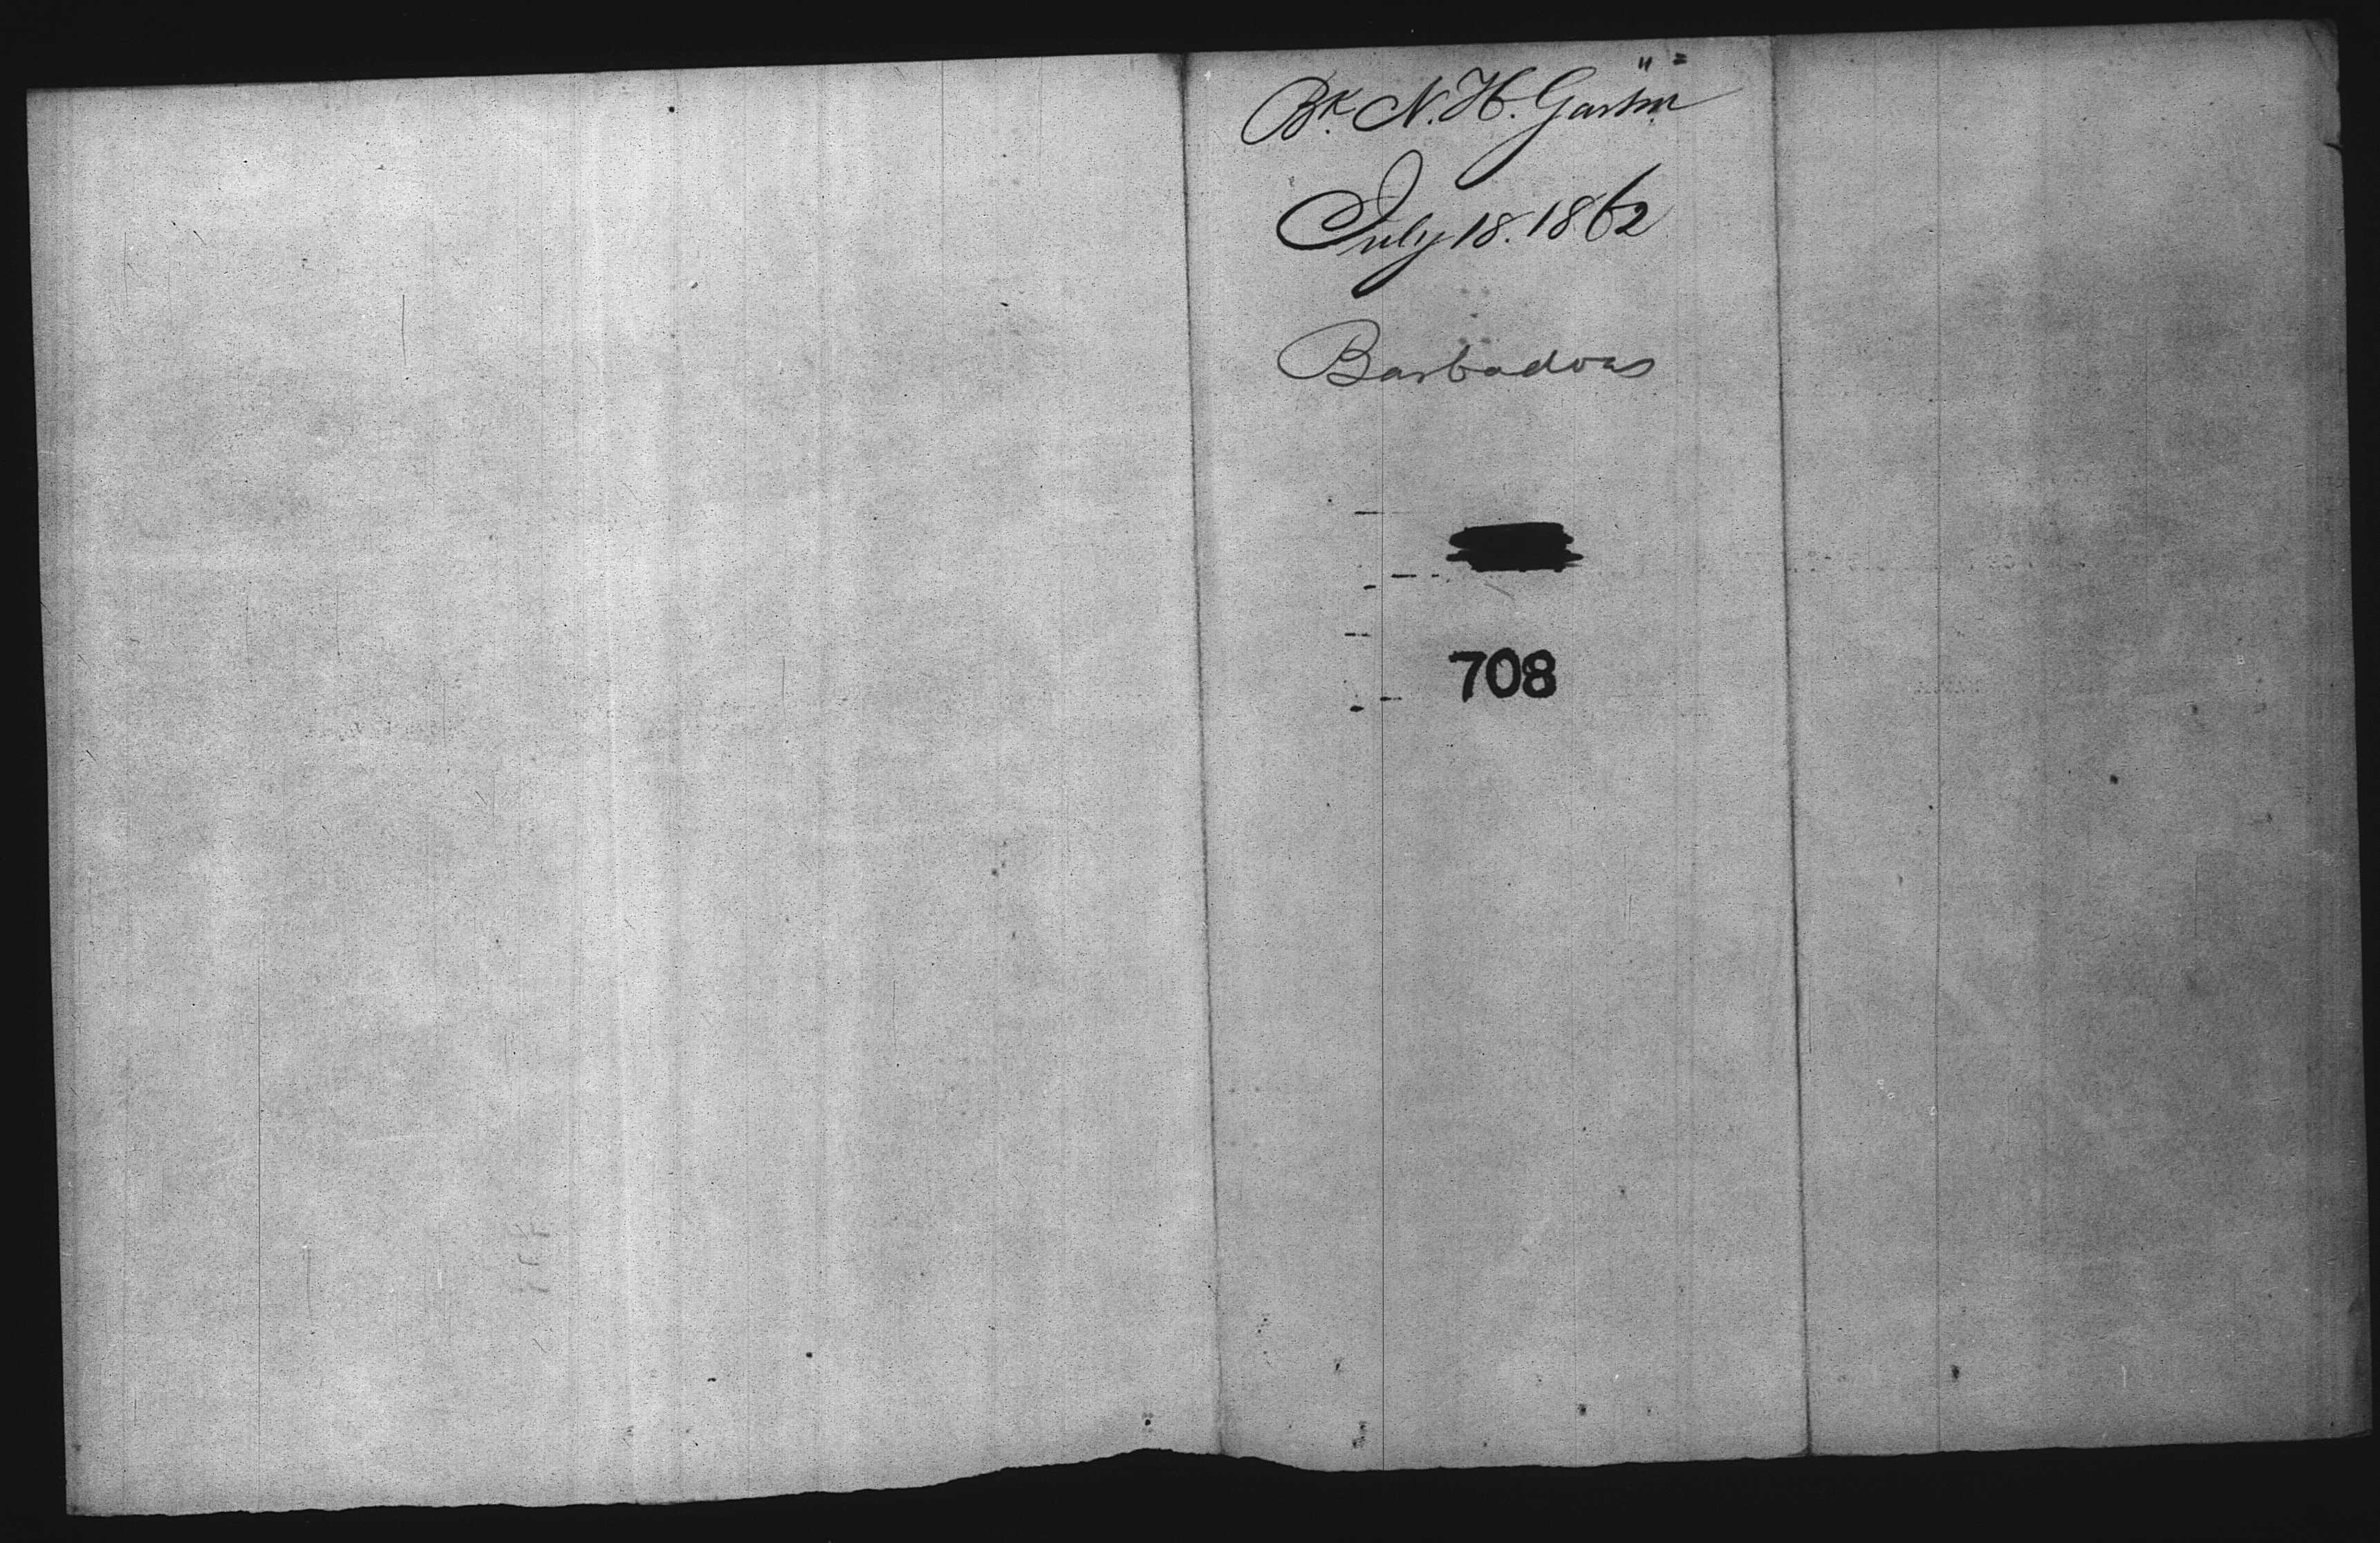 Bk. N. H. Gaston
July 18. 1862
Barbadoes
708